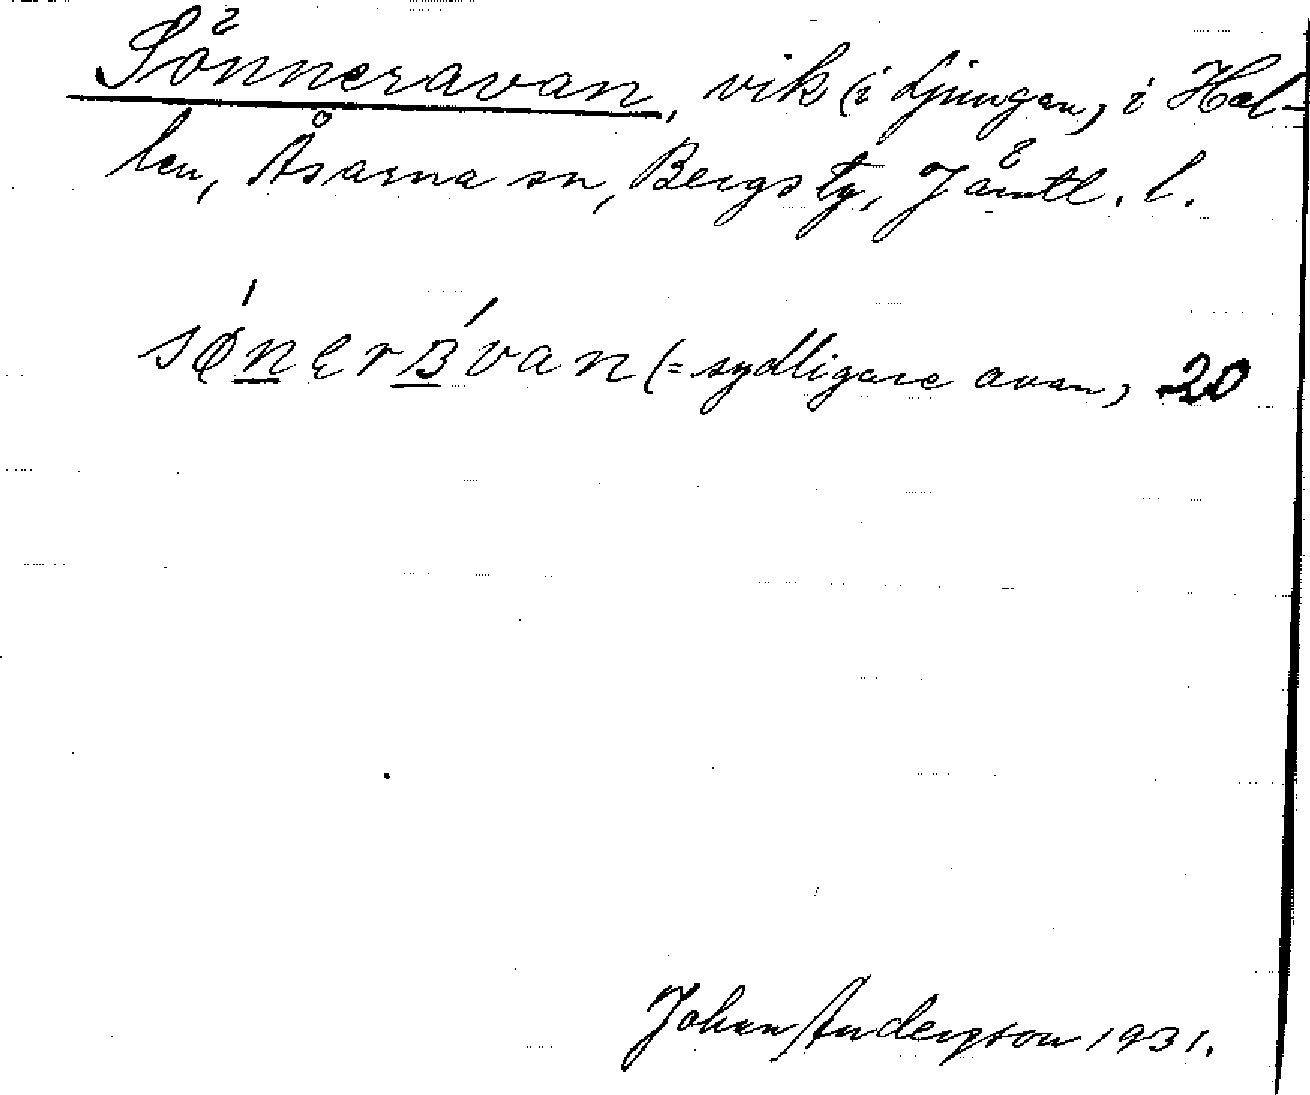 Sönneravan, vik (i Ljungan) i Hal-
len, Åsarna sn, Bergs tg, Jämtl. l.
sø´nerʙ´van (= sydligare avan) 20
Johan Andersson 1931.